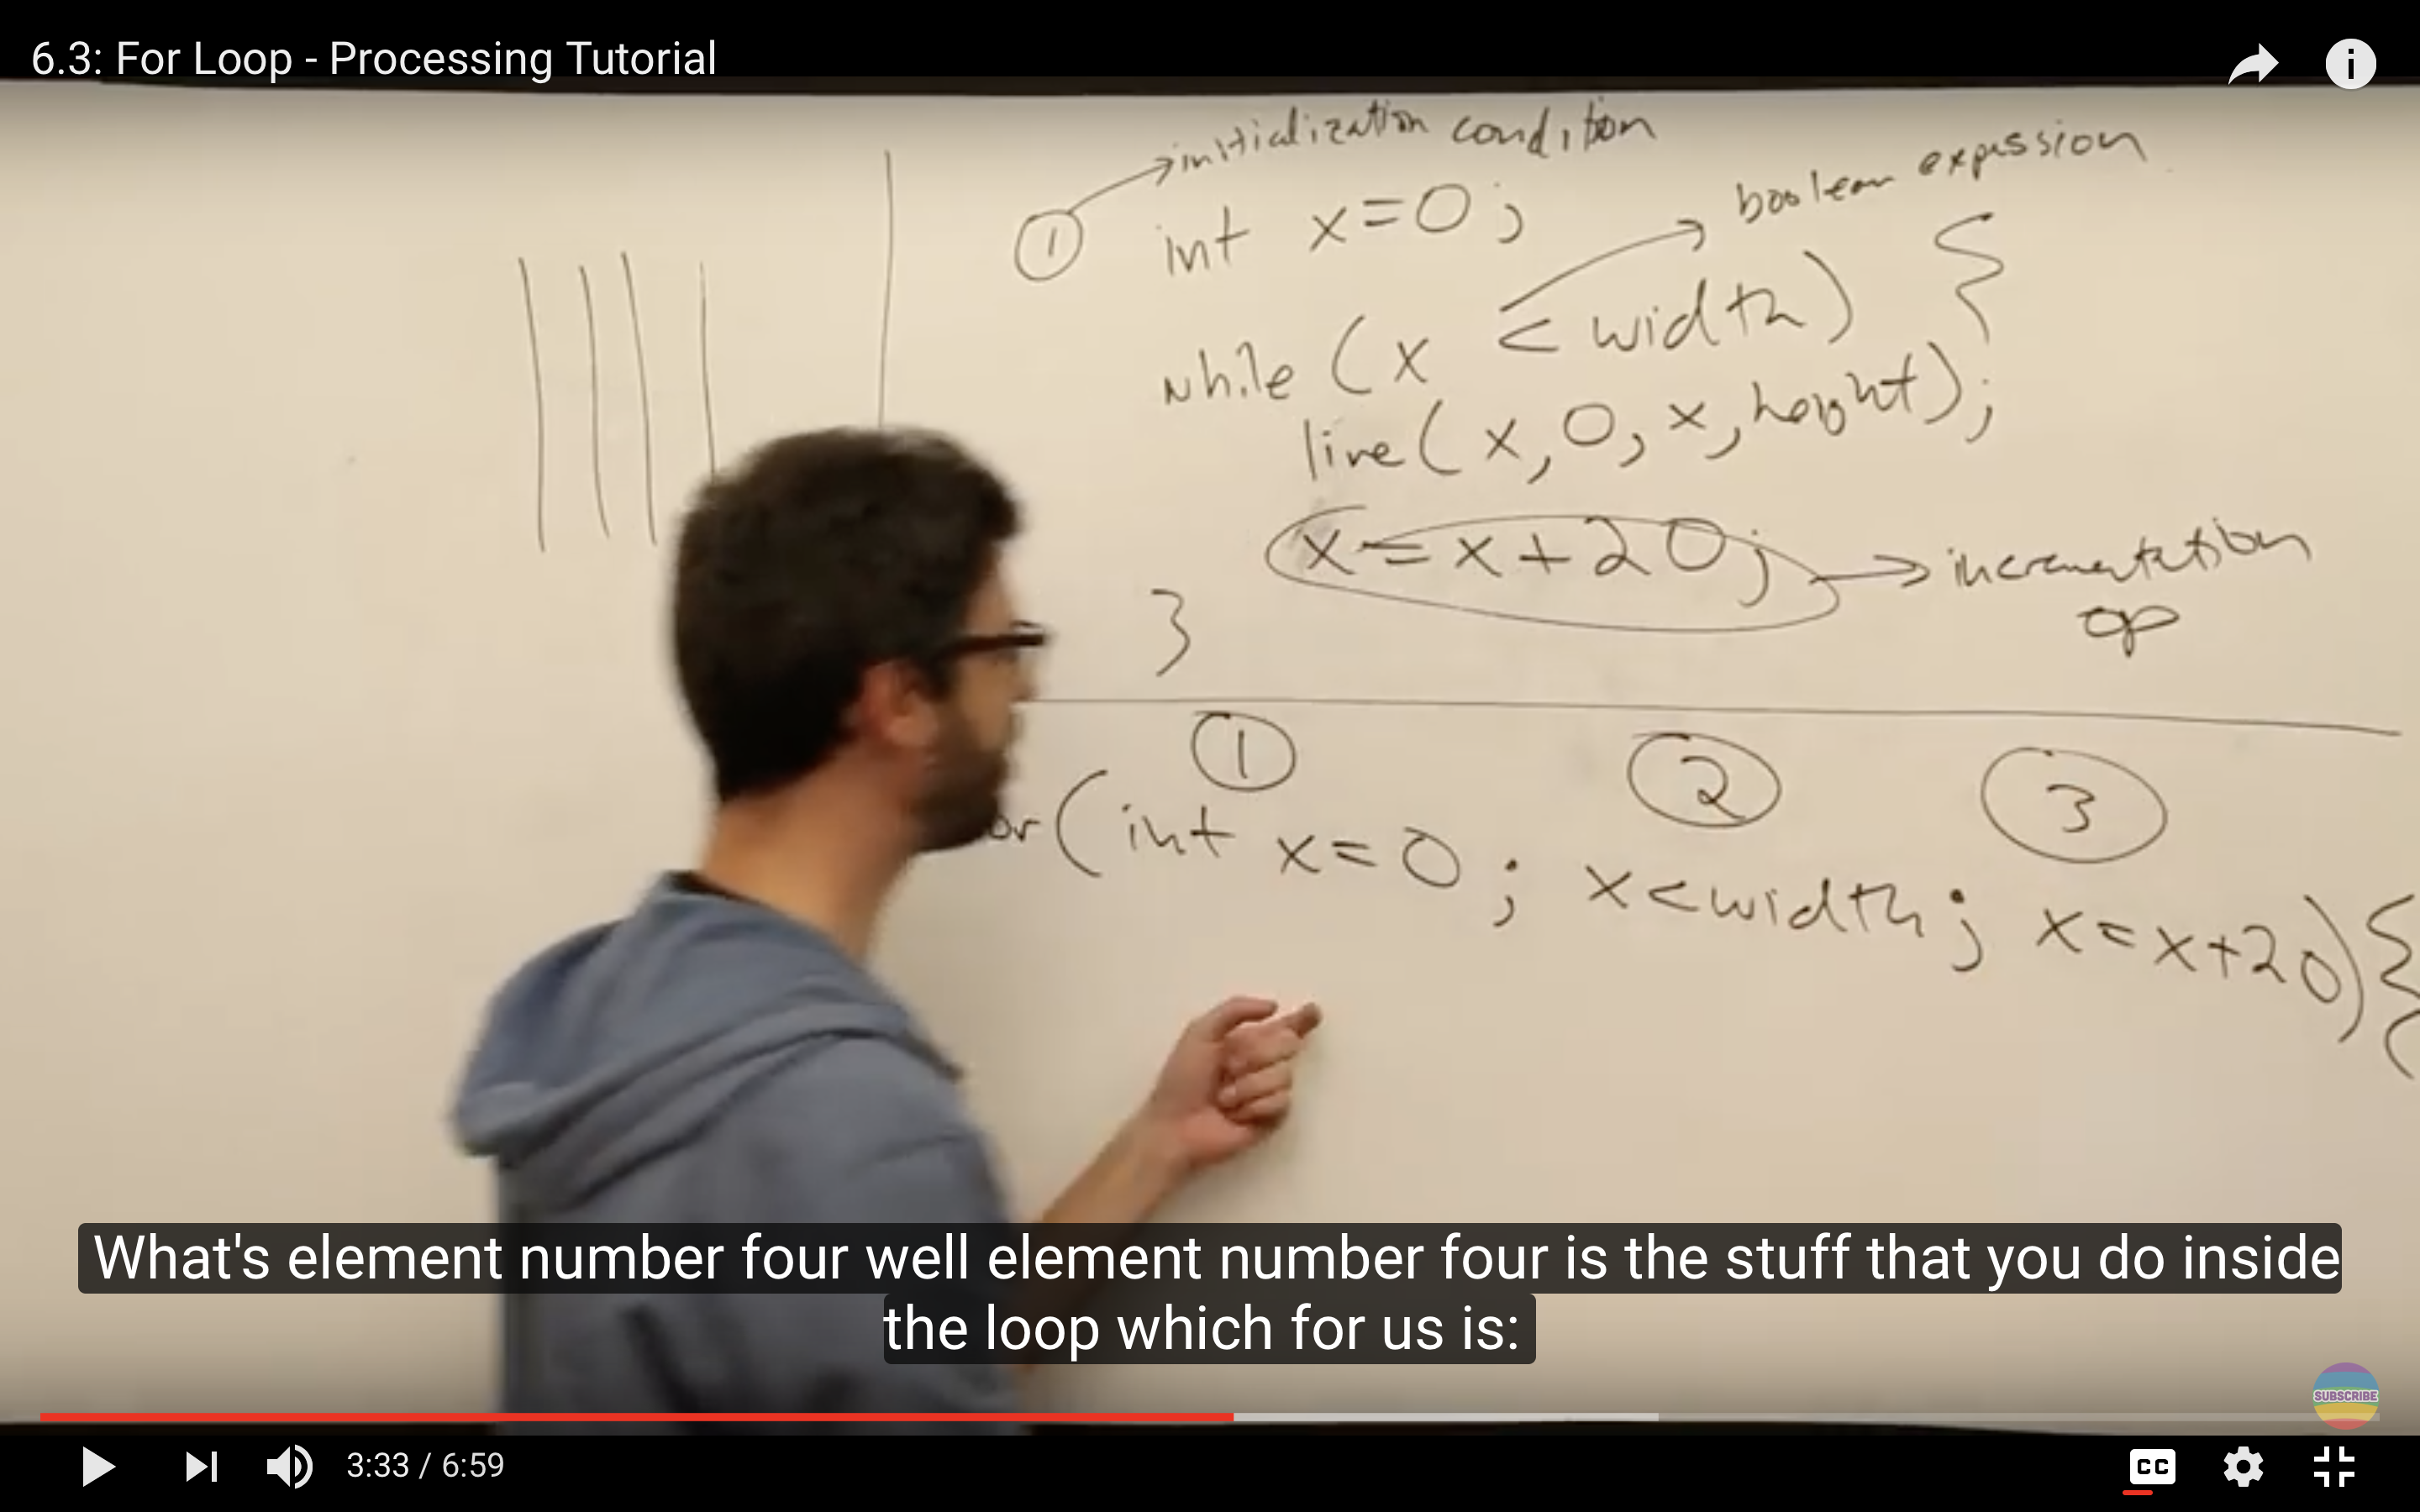 6.3: For Loop - Processing Tutorial
initialization condition
1 int x=0;
boolean expession
while (x < width) {
line(x,0,x,height);
x=x+20;
incrementation
op
}
1 2 3
or(int x=0; x<width; x=x+20){
What's element number four well element number four is the stuff that you do inside
the loop which for us is:
SUBSCRIBE
3:33 / 6:59
CC